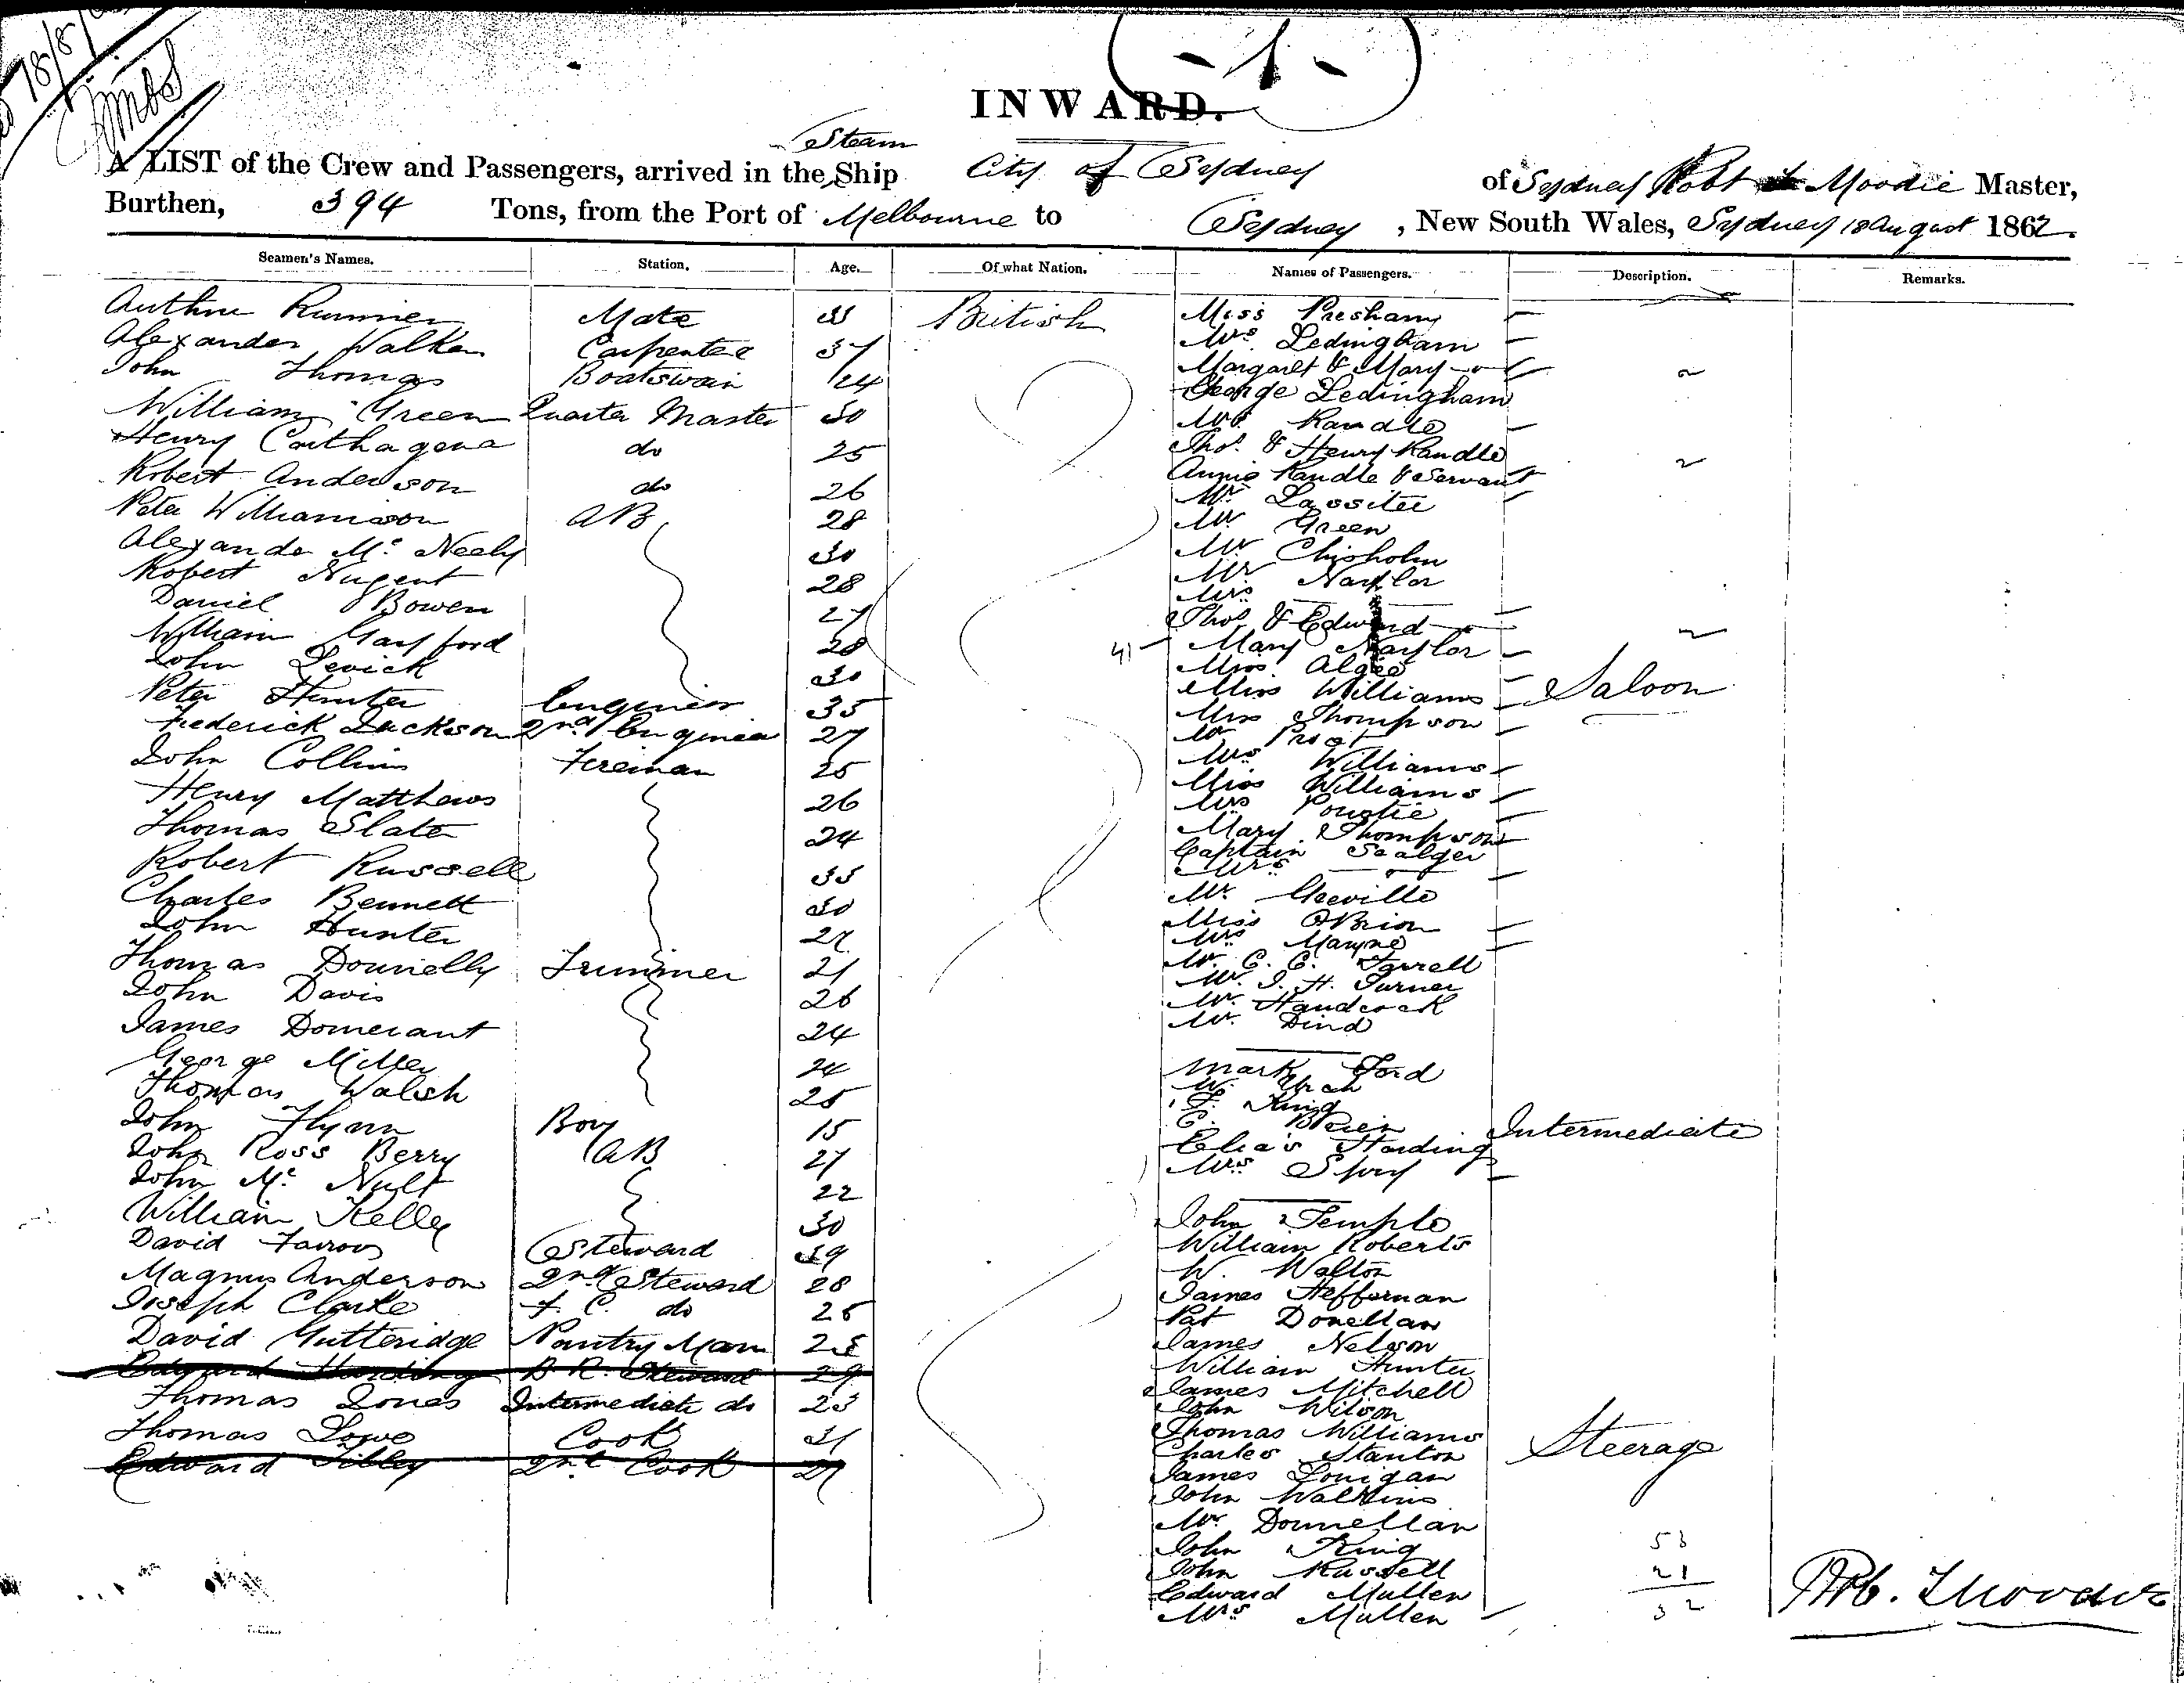 18/8/
- 1 -
INWARD.
Steam
A LIST of the Crew and Passengers, arrived in the Ship City of Sydney of Sydney Robt Moodie Master,
Burthen, 394 Tons, from the Port of Melbourne to Sydney, New South Wales, Sydney 18 August 1862.
Seamen's Names. Station. Age. Of what Nation. Names of Passengers. Description. Remarks.
Mate British
Alexander Walker Carpenter 37
John Thomas Boatswain 24
William Green Quarter Master 30
Henry Carthagena do 25
Robert Anderson do 26
Peter Williamson AB 28
Alexander Mc Neely 30
Robert Nugent 28
Daniel Bowen 27
William Gayford 28
John Levick 30
Peter Hunter Engineer 35
Frederick Jackson 2nd Engineer 27
John Collins Fireman 25
Henry Matthews 26
Thomas Slater 24
Robert Russell 33
Charles Bennett 30
John Hunter 27
Thomas Donnelly Trimmer 21
John Davis 26
James Domerant 24
George Miller 24
Thomas Walsh 25
John Flynn Boy 15
John Ross Berry AB 27
John Mc Nult 22
William Kelly 30
David Farrow Steward 39
Magnus Anderson 2nd Steward 28
Joseph Clarke F. C. do 25
David Gutteridge Pantry Man 25
Edward Harding B R. Steward 29
Thomas Jones Intermediate do 23
Thomas Lowe Cook 31
Edward Sibley 2nd Cook 27
Miss Presham
Mrs. Ledingham
Margaret & Mary
George Ledingham
Mrs Randle
Thos. & Henry Randle
Annie Randle & Servant
Mr. Lassiter
Mr Green
Mr Chisholm
Mr Naylor
Mrs
Thos & Edward
41 - Mary Naylor
Mrs Algie
Miss Williams
Saloon
Mrs Thompson
Mrs Williams
Miss Williams
Mrs Powtie
Mary Thompson
Captain Sealger
Mrs
Mr. Greville
Miss OBrion
Mrs Mayne
Mr. C. C. Farrell
Mr. J. H. Turner
Mr. Handcock
Mr. Dind
Mark Ford
F. King
E. Brien
Intermediate
Elias Harding
Mrs Spry
John Temple
William Roberts
W. Walton
James Heffernan
Pat Donellan
James Nelson
William Hunter
James Mitchell
John Wilson
Thomas Williams
Charles Stanton
Steerage
James Lonigan
John Watkins
Mr. Donnellan
John King
John Russell
Edward Mullen
Mrs Mullen
53
21
32